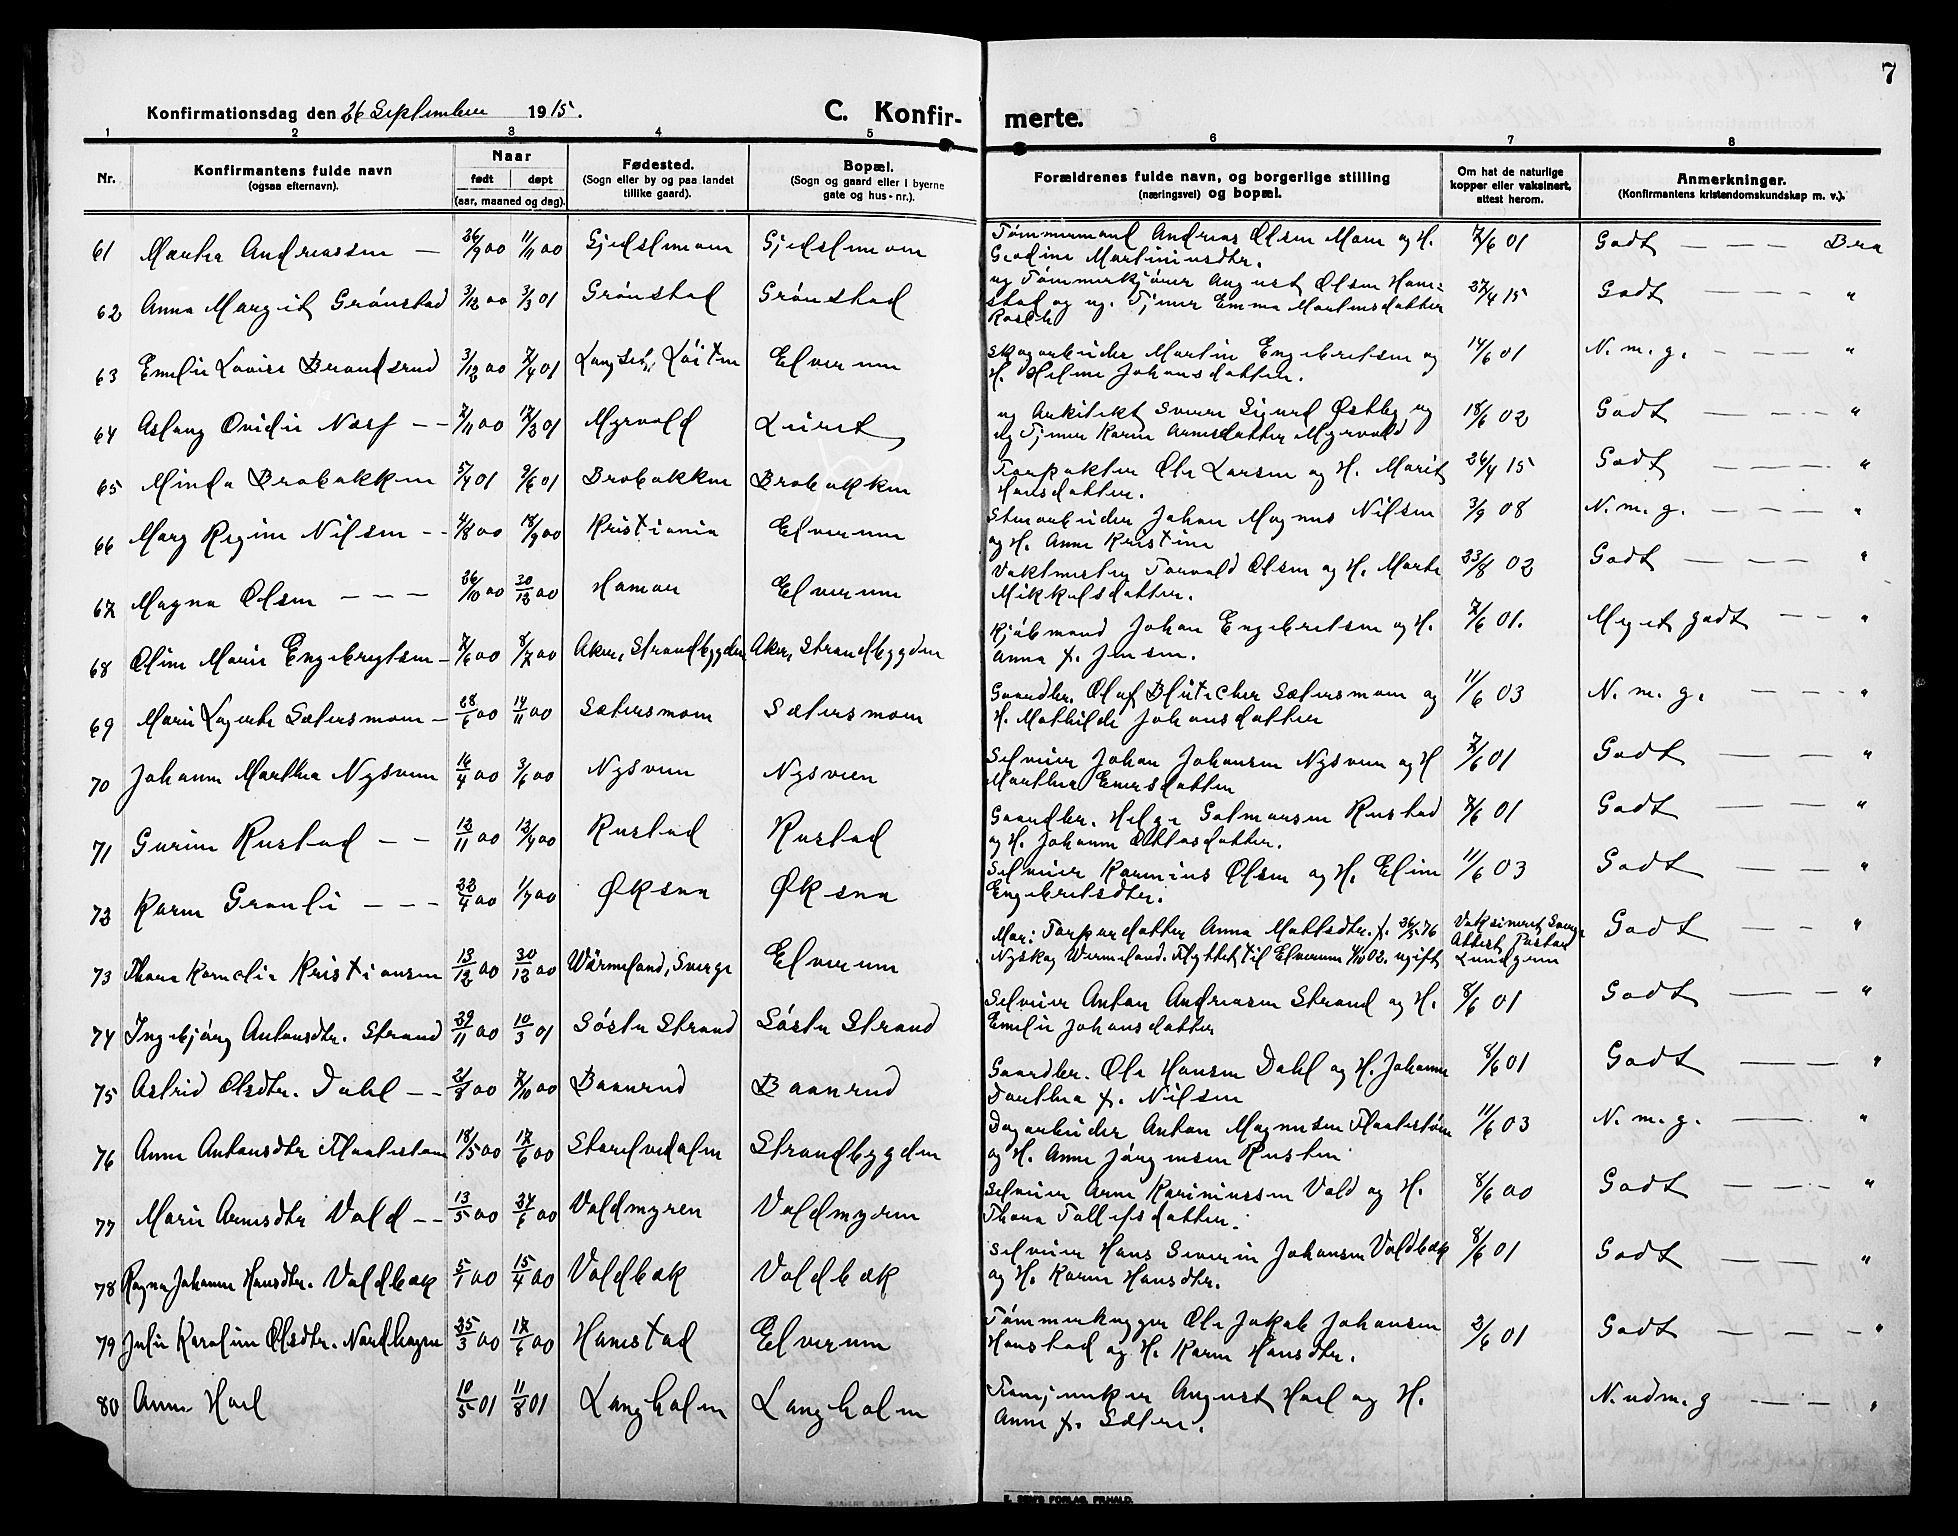 7
Konfirmationsdag den 26 September 1915.
C. Konfir- merte.
1 2 3 4 5 6 7 8
Nr. Konfirmantens fulde navn (ogsaa efternavn). Naar født døpt (aar, maaned og dag). Fødested. (Sogn eller by og paa landet tillike gaard). Bopæl. (Sogn og gaard eller i byerne gate og hus-nr.). Forældrenes fulde navn, og borgerlige stilling (næringsvei) og bopæl. Om hat de naturlige kopper eller vaksinert, attest herom. Anmerkninger. (Konfirmantens kristendomskundskap m. v.).
61 Martha Andreassen — 26/9 00 11/11 00 Gjedslemoem Gjedslemoem Tømmermand Andreas Olsen Moem og H. 7/6 01 Godt — — — Bra
Martiniusdtr.
62 Anna Margit Grønstad 3/12 00 3/3 01 Grønstad Grønstad ug Tømmerkjører August Olsen Hans= 27/4 15 Godt — — — "
stad og ug. Tjener Emma Martinsdatter
63 Emelie Lovise Brandsrud 3/12 00 7/4 01 Løiten Elverum Skogarbeider Martin Engebretsen og 14/6 01 N. m. g. — — — "
H. Helene Johansdatter.
64 Aslaug Ovidie Næss — — 7/11 00 17/3 01 Myrvold ug Arkitekt Sverre Sigurd Østby og 18/6 02 Godt — — — "
ug Tjener Karen Arnesdatter Myrvold
65 Minda Brobakken 5/4 01 9/6 01 Brobakken Brobakken Forpakter Ole Larsen og H. Marit 26/4 15 Godt — — — "
Hansdatter.
66 Mary Regine Nilsen — — 4/8 00 18/9 00 Kristiania Elverum Stenarbeider Johan Magnus Nilsen 3/9 08 N. m. g. — — — "
og H. Anne Kristine
67 Magna Olsen — — — 26/10 00 30/12 00 Hamar Elverum Vaktmester Torvald Olsen og H. Marte 23/8 02 Godt — — — "
Mikkelsdatter.
68 Oline Marie Engebregtsen — 7/6 00 8/7 00 Aker, Strandbygden Aker, Strandbygden Kjøbmand Johan Engebretsen og H. 7/6 01. Meget godt — — "
Anna f. Jensen.
69 Marie Lagerta Sætersmoen — 28/6 00 14/11 00 Sætersmoen Sætersmoen Gaardbr. Olaf Sætersmoen og 11/6 03 N. m. g. — — — "
H. Mathilde Johansdatter
70 Johanne Marthea Nysveen 16/4 00 3/6 00 Nysveen Nysveen Selveier Johan Johansen Nysveen og H 7/6 01 Godt — — — "
Marthea Enersdatter
71 Gurine Rustad — — 12/11 00 Rustad Rustad Gaardbr. Helge Rustad 7/6 01 Godt — — — "
og H. Johanne Ottosdatter.
72 Karen Granli — — — 22/4 00 1/7 00 Øksna Øksna Selveier Karinius Olsen og H. Eline 11/6 03 Godt — — — "
Engebretsdtr.
73 Thora Kornelia Kristiansen 13/12 00 30/12 00 Wärmeland, Sverge Elverum Mor: Torpardatter Anna Mattsdtr. f. 26/5.76 Vaksineret Sverge Godt — — "
Nyskog Wermeland. Flyttet til Elverum 4/10 02. ugift Attest Pastor Lundgren
74 Ingebjørg Antonsdtr. Strand 29/11 00 10/3 01 Søstu Strand Søstu Strand Selveier Anton Andreasen Strand og H. 8/6 01 Godt — — — "
Emelie Johansdatter
75 Astrid Olsdtr. Dahl — — 21/8 00 7/10 00 Baanrud Baanrud Gaardbr. Ole Hansen Dahl og H. Johanne 8/6 01 Godt — — — "
Dorthea f. Nilsen
76 Anne Antonsdtr 18/5 00 17/6 00 Strandbygden Dagarbeider Anton Magnusen 11/6 03 N. m. g. — — — "
og H. Anne Jørgensen Rusten
77 Marie Arnesdtr Vold — — 13/5 00 24/6 00 Voldmyren Voldmyren Selveier Arne Kariniussen Vold og H. 8/6 00 Godt — — — "
Thora Tollefsdatter.
78 Ragna Johanne Hansdtr. Voldbæk 5/1 00 15/4 00 Voldbæk Voldbæk Selveier Hans Severin Johansen Voldbæk 8/6 01 Godt — — — "
og H. Karen Hansdtr.
79 Julie Karoline Olsdtr. Nordhagen 25/3 00 17/6 00 Hanstad Elverum Tømmerhugger Ole Jakob Johansen 2/6 01 Godt — — — "
Hanstad og H. Karen Hansdtr.
80 Anne Hoel 10/5 01 11/8 01 Langholm Langholm Fanejunker August Hoel og H. N. udm. g — — "
Anne f. Sæter.